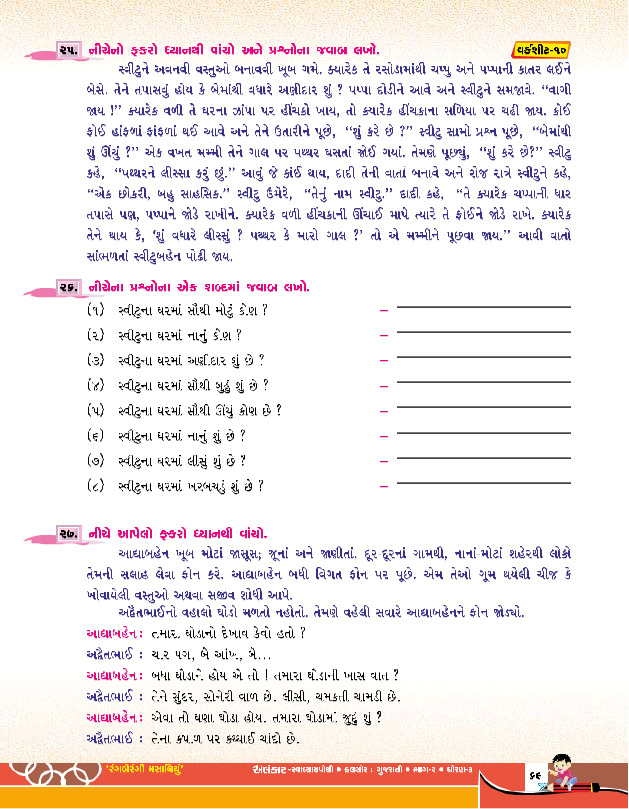 ૨૫. નીચેનો ફકરો ધ્યાનથી વાંચો અને પ્રશ્નોના જવાબ લખો.
વર્કશીટ-૧૦
સ્વીટુને અવનવી વસ્તુઓ બનાવવી ખૂબ ગમે. ક્યારેક તે રસોડામાંથી ચપ્પુ અને પપ્પાની કાતર લઈને
બેસે. તેને તપાસવું હોય કે બેમાંથી વધારે અણીદાર શું ? પપ્પા દોડીને આવે અને સ્વીટુને સમજાવે. ‘‘વાગી
જાય !’’ ક્યારેક વળી તે ઘરના ઝાંપા પર હીંચકો ખાય, તો ક્યારેક હીંચકાના સળિયા પર ચઢી જાય. કોઈ
ફોઈ હાંફળાં ફાંફળાં થઈ આવે અને તેને ઉતારીને પૂછે, ‘‘શું કરે છે ?’’ સ્વીટુ સામો પ્રશ્ન પૂછે, ‘‘બેમાંથી
શું ઊંચું ?’’ એક વખત મમ્મી તેને ગાલ પર પથ્થર ઘસતાં જોઈ ગયાં. તેમણે પૂછ્યું, ‘‘શું કરે છે?’’ સ્વીટુ
કહે, ‘‘પથ્થરને લીસ્સા કરું છું.’’ આવું જે કાંઈ થાય, દાદી તેની વાર્તા બનાવે અને રોજ રાત્રે સ્વીટુને કહે,
‘‘એક છોકરી, બહુ સાહસિક.’’ સ્વીટુ ઉમેરે, ‘‘તેનું નામ સ્વીટુ.’’ દાદી કહે, ‘‘તે ક્યારેક ચપ્પાની ધાર
તપાસે પણ, પપ્પાને જોડે રાખીને. ક્યારેક વળી હીંચકાની ઊંચાઈ માપે ત્યારે તે ફોઈને જોડે રાખે. ક્યારેક
તેને થાય કે, ‘શું વધારે લીસ્સું ? પથ્થર કે મારો ગાલ ?’ તો એ મમ્મીને પૂછવા જાય.’’ આવી વાતો
સાંભળતાં સ્વીટુબહેન પોઢી જાય.
૨૬. નીચેના પ્રશ્નોના એક શબ્દમાં જવાબ લખો.
(૧) સ્વીટુના ઘરમાં સૌથી મોટું કોણ ? –
(૨) સ્વીટુના ઘરમાં નાનું કોણ ? –
(૩) સ્વીટુના ઘરમાં અણીદાર શું છે ? –
(૪) સ્વીટુના ઘરમાં સૌથી બુઠ્ઠું શું છે ? –
(૫) સ્વીટુના ઘરમાં સૌથી ઊંચું કોણ છે ? –
(૬) સ્વીટુના ઘરમાં નાનું શું છે ? –
(૭) સ્વીટુના ઘરમાં લીસું શું છે ? –
(૮) સ્વીટુના ઘરમાં ખરબચડું શું છે ? –
૨૭. નીચે આપેલો ફકરો ધ્યાનથી વાંચો.
આદ્યાબહેન ખૂબ મોટાં જાસૂસ; જૂનાં અને જાણીતાં. દૂર-દૂરનાં ગામથી, નાનાં-મોટાં શહેરથી લોકો
તેમની સલાહ લેવા ફોન કરે. આદ્યાબહેન બધી વિગત ફોન પર પૂછે. એમ તેઓ ગૂમ થયેલી ચીજ કે
ખોવાયેલી વસ્તુઓ અથવા સજીવ શોધી આપે.
અદ્વૈતભાઈનો વહાલો ઘોડો મળતો નહોતો. તેમણે વહેલી સવારે આદ્યાબહેનને ફોન જોડ્યો.
આદ્યાબહેન : તમારા ઘોડાનો દેખાવ કેવો હતો ?
અદ્વૈતભાઈ : ચાર પગ, બે આંખ, બે...
આદ્યાબહેન : બધા ઘોડાને હોય એ તો ! તમારા ઘોડાની ખાસ વાત ?
અદ્વૈતભાઈ : તેને સુંદર, સોનેરી વાળ છે. લીસી, ચમકતી ચામડી છે.
આદ્યાબહેન : એવા તો ઘણા ઘોડા હોય. તમારા ઘોડામાં જુદું શું ?
અદ્વૈતભાઈ : તેના કપાળ પર કથ્થાઈ ચાંદો છે.
‘રંગબેરંગી મસાબિયું’
અલંકાર-સ્વાધ્યાયપોથી • કલશોર : ગુજરાતી • ભાગ-૨ • ધોરણ-૩
૬૯